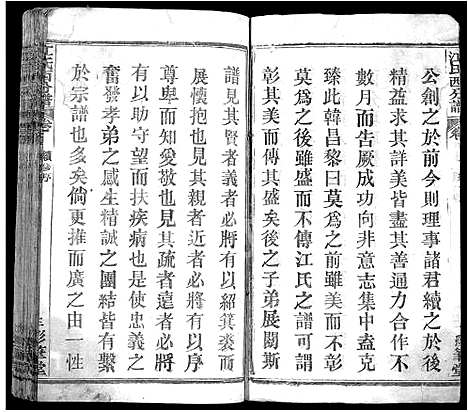 公創之於前今則理事諸君續之於後
精益求其詳美皆盡善通力合作不
數月而吿厥成功向非意志集中盍克
臻此韓昌黎曰莫爲之前雖美而不彰
莫爲之後雖盛而不傳江氏之譜可謂
彰其美而傳其盛矣後之子弟展閱斯
譜見其賢者義者必將有以紹箕裘而
展懷抱也見其親者近者必將有以序
尊卑而知愛敬也見其疏者遠者必將
有以助守望而扶疾病也是使忠義之
奮發孝弟之感生精誠之團結皆有繫
於宗譜也多矣倘更推而廣之由一性